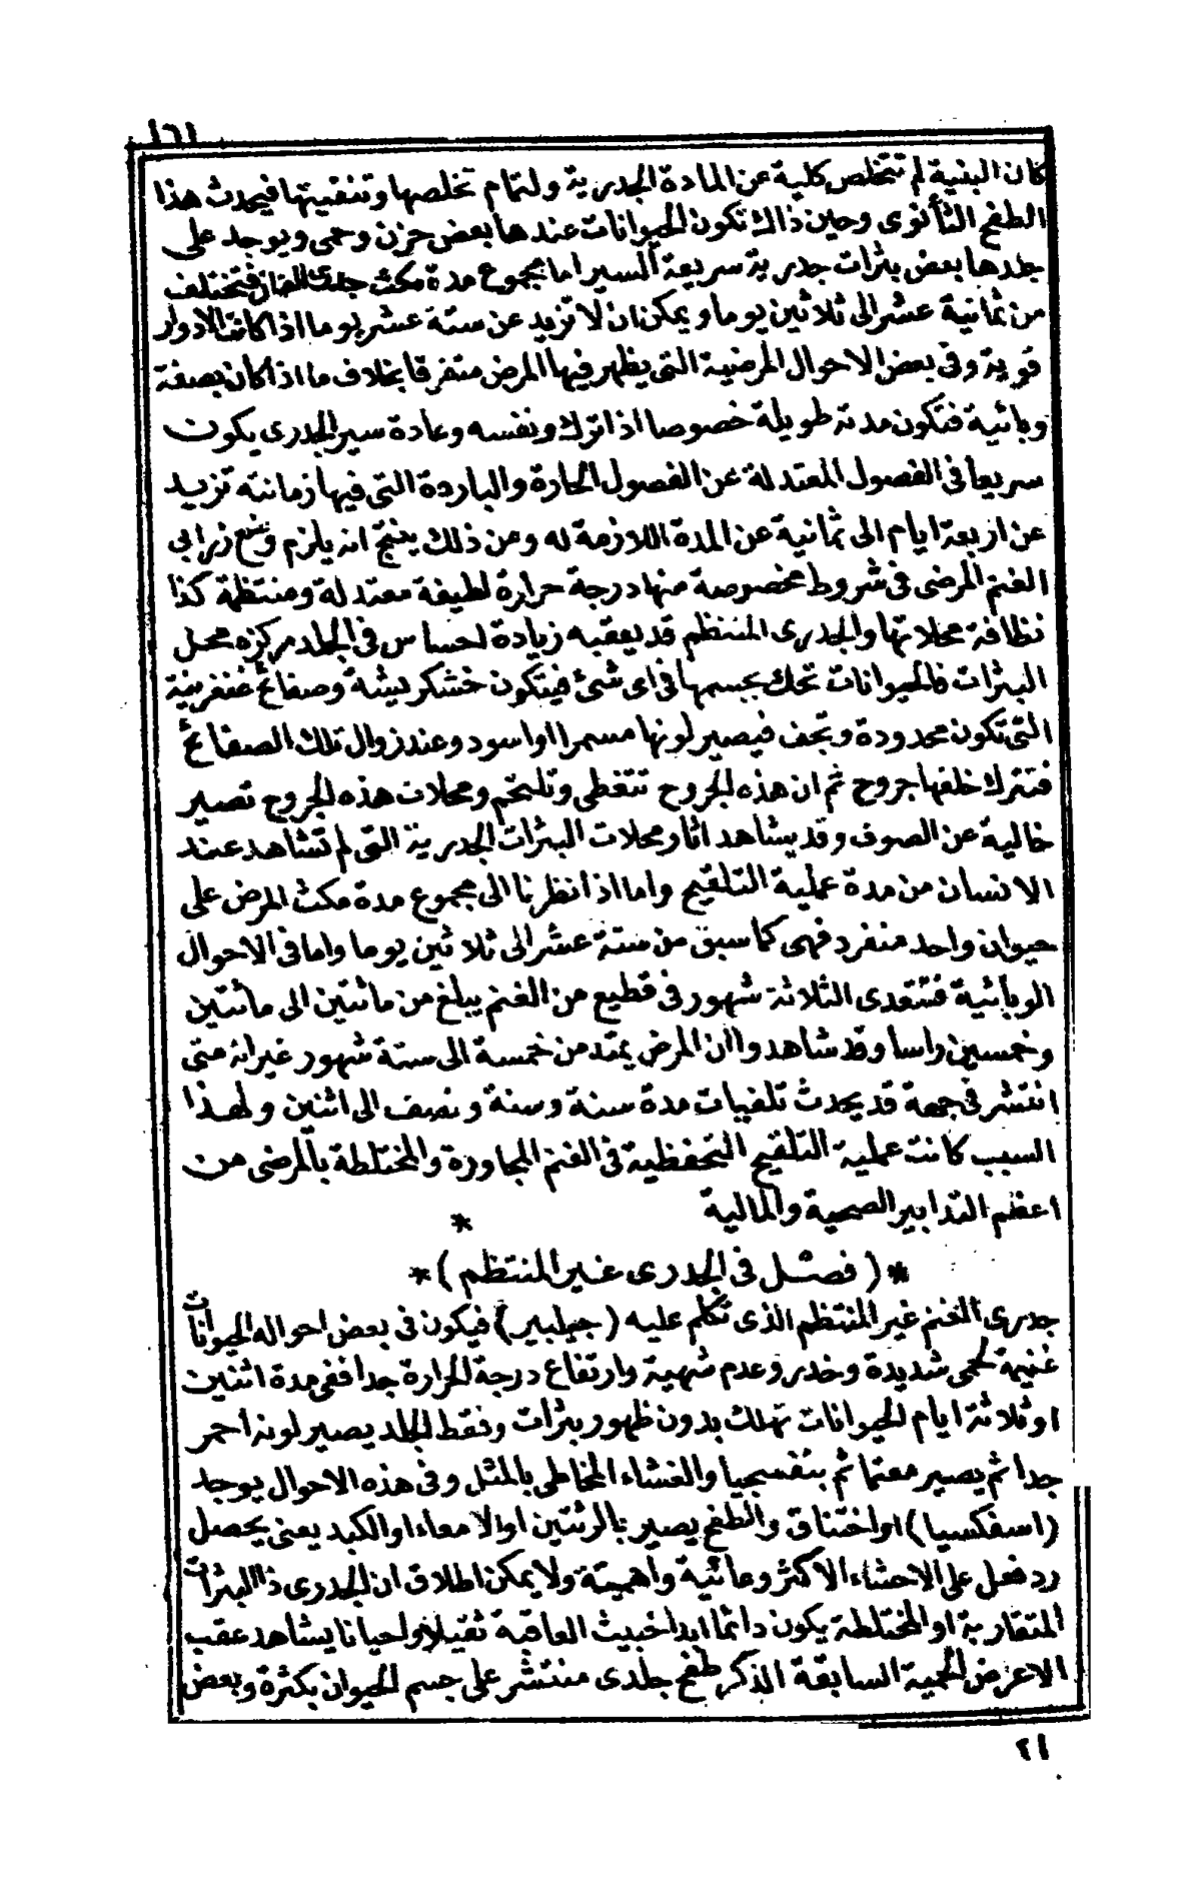 ١٦١
كان البنية لم تتخلص كلية عن المادة الجدرية ولتمام تخلصها وتنقيتها فيحدث هذا
الطفح الثأنوى وحين ذاك تكون الحيوانات عندها بعض حزن وحمى ويوجد على
جلدها بعض بثرات جدرية سريعة السير اما مجموع مدة مكث جدرى الضان فتختلف
من ثمانية عشر الى ثلاثين يوما ويمكن ان لا تزيد عن ستة عشر يوما اذا كانت الادوار
قوية وفى بعض الاحوال المرضية التى يظهر فيها المرض متفرقا بخلاف ما اذا كان بصفة
وبائية فتكون مدته طويلة خصوصا اذا ترك ونفسه وعادة سير الجدرى يكون
سريعا فى الفصول المعتدلة عن الفصول الحارة والباردة التى فيها زمانته تزيد
عن اربعة ايام الى ثمانية عن المدة اللازمة له ومن ذلك ينتج انه يلزم وضع زرابى
الغنم المرضى فى شروط مخصوصة منها درجة حرارة لطيفة معتدلة ومنتظمة كذا
نظافة محلاتها والجدرى المنتظم قد يعقبه زيادة احساس فى الجلد مركزه محل
البثرات فالحيوانات تحك بجسمها فى اى شئ فيتكون خشكريشة وصفائح غنغرينية
التى تكون محدودة وتجف فيصير لونها مسمرا او اسود وعند زوال تلك الصفائح
فتترك خلفها جروح ثم ان هذه الجروح تتغطى وتلتحم ومحلات هذه الجروح تصير
خالية عن الصوف وقد يشاهد اثار ومحلات البثرات الجدرية التى لم تشاهد عند
الانسان من مدة عملية التلقيح واما اذا نظرنا الى مجموع مدة مكث المرض على
حيوان واحد منفرد فهى كما سبق من ستة عشر الى ثلاثين يوما واما فى الاحوال
الوبائية فتتعدى الثلاثة شهور فى قطيع من الغنم يبلغ من مائتين الى مائتين
وخمسين راسا وقد شاهدوا ان المرض يمتد من خمسة الى ستة شهور غير انه متى
انتشر فى جهة قد يحدث تلفيات مدة سنة وسنة ونصف الى اثنين ولهذا
السبب كانت عملية التلقيح التحفظية فى الغنم المجاورة والمختلطة بالمرضى من
اعظم التدابير الصحية والمالية *
*(فصل فى الجدرى غير المنتظم)*
جدرى الغنم غير المنتظم الذى تكلم عليه (جيلبير) فيكون فى بعض احواله الحيوانات
غنيمة لحمى شديدة وخدر وعدم شهية وارتفاع درجة الحرارة جدا ففى مدة اثنين
او ثلاثة ايام الحيوانات تهلك بدون ظهور بثرات وفقط الجلد يصير لونه احمر
جدا ثم يصير معتما ثم بنفسجيا والغشاء المخاطى بالمثل وفى هذه الاحوال يوجد
(اسفكسيا) او اختناق والطفح يصير بالرئتين او الامعاء او الكبد يعنى يحصل
رد فعل على الاحشاء الاكثر وعائية واهمية ولا يمكن اطلاق ان الجدرى ذا البثرات
المتقاربة او المختلطة يكون دائما ابدا خبيث العاقبة ثقيلا واحيانا يشاهد عقب
الاعرض الحمية السابقة الذكر طفح جلدى منتشر على جسم الحيوان بكثرة وبعض
٢١